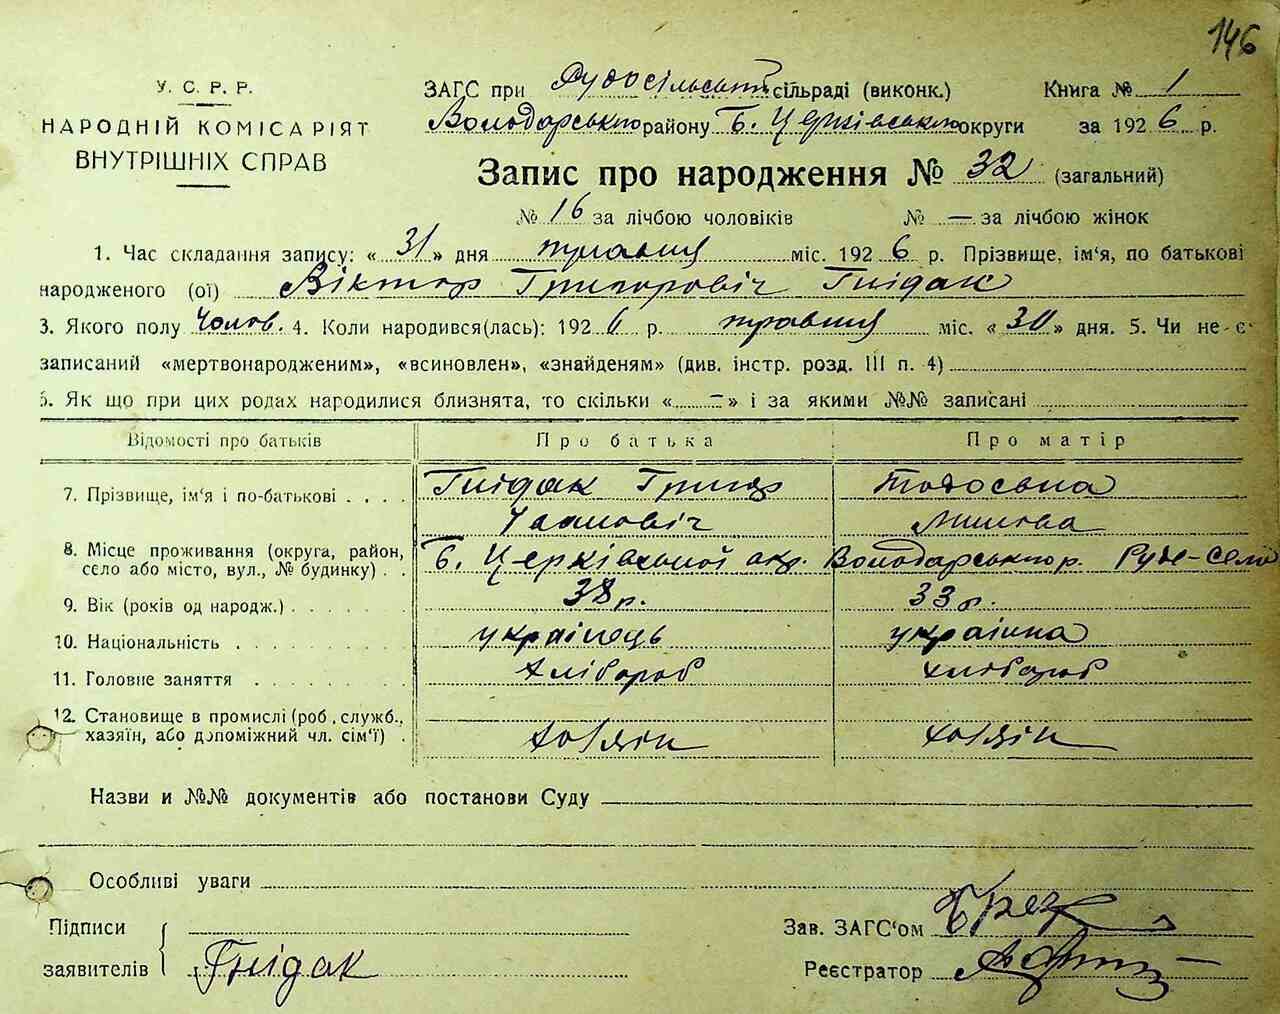 146
У. С. Р. Р.
НАРОДНІЙ КОМІСАРІЯТ
ВНУТРІШНІХ СПРАВ
ЗАГС при Рудосільській сільраді (виконк.) Книга № 1
Володарського району Б. Церківського округи за 1926 р.
Запис про народження № 32 (загальний)
№ 16 за лічбою чоловіків № — за лічбою жінок
1. Час складання запису: «31» дня травня міс. 1926 р. Прізвище, ім'я, по батькові
народженого (ої) Віктор Григорович Гнідак
3. Якого полу Чолов. 4. Коли народився(лась): 1926 р. травня міс. «30» дня. 5. Чи не є
записаний «мертвонародженим», «всиновлен», «знайденям» (див. інстр. розд. III п. 4)
6. Як що при цих родах народилися близнята, то скільки «–» і за якими №№ записані
Відомості про батьків Про батька Про матір
7. Прізвище, ім'я і по-батькові Гнідак Григор Тодоська
8. Місце проживання (округа, район, Б. Церківської окр. Володарського р. Руде-село
село або місто, вул., № будинку)
9. Вік (років од народж.) 38 р. 33 р.
10. Національність українець українка
11. Головне заняття хлібороб хлібороб
12. Становище в промислі (роб., служб.,
хазяїн, або допоміжний чл. сім'ї) хозяін хозяін
Назви и №№ документів або постанови Суду
Особливі уваги
Підписи
заявителів Гнідак
Зав. ЗАГС'ом
Реєстратор